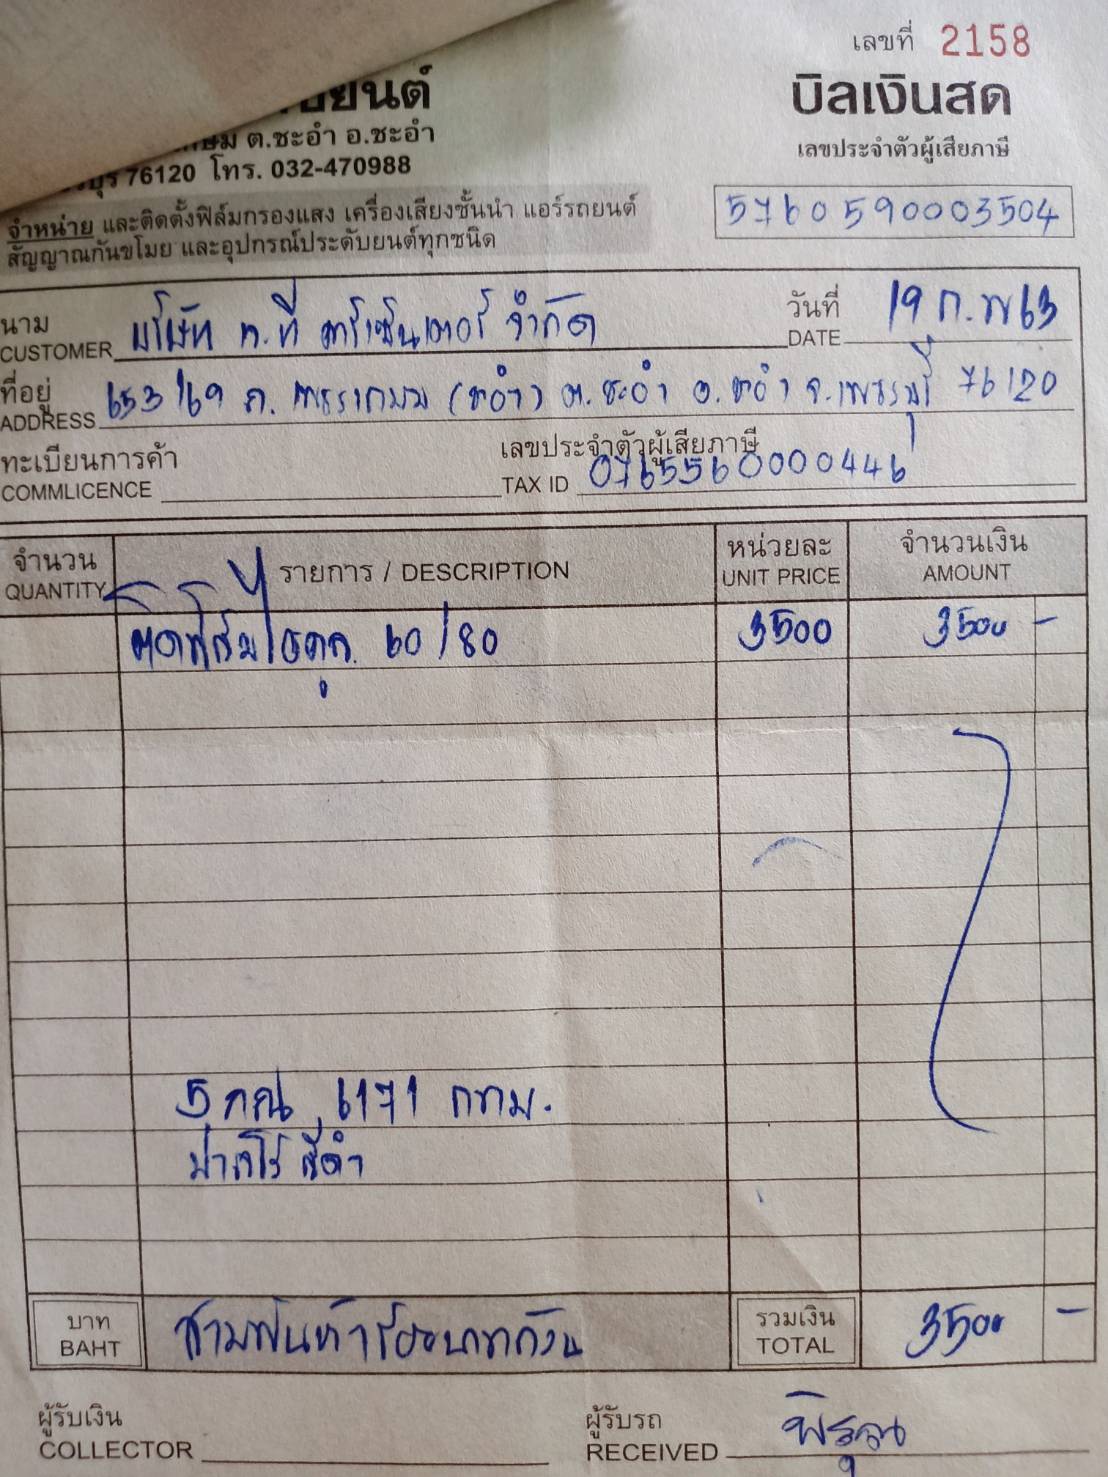 เลขที่ 2158
ยนต์
บิลเงินสด
ต.ชะอำ อ.ชะอำ
เลขประจำตัวผู้เสียภาษี
76120 โทร. 032-470988
5760590003504
จำหน่าย และติดตั้งฟิล์มกรองแสง เครื่องเสียงชั้นนำ แอร์รถยนต์
สัญญาณกันขโมย และอุปกรณ์ประดับยนต์ทุกชนิด
นาม บริษัท ท.ที คาร์เซ็นเตอร์ จำกัด วันที่ 19 ก.พ 63
CUSTOMER DATE
ที่อยู่ 653/69 ถ. เพชรเกษม (ชะอำ) ต.ชะอำ อ.ชะอำ จ.เพชรบุรี 76120
ADDRESS
ทะเบียนการค้า เลขประจำตัวผู้เสียภาษี
COMMLICENCE TAX ID 0765560000446
จำนวน รายการ / DESCRIPTION หน่วยละ จำนวนเงิน
QUANTITY UNIT PRICE AMOUNT
ติดฟิล์ม 60/80 3500 3500 -
5 กณ 6171 กทม.
ปาเจโร่ สีดำ
บาท สามพันห้าร้อยบาทถ้วน รวมเงิน 3500 -
BAHT TOTAL
ผู้รับเงิน ผู้รับรถ
COLLECTOR RECEIVED